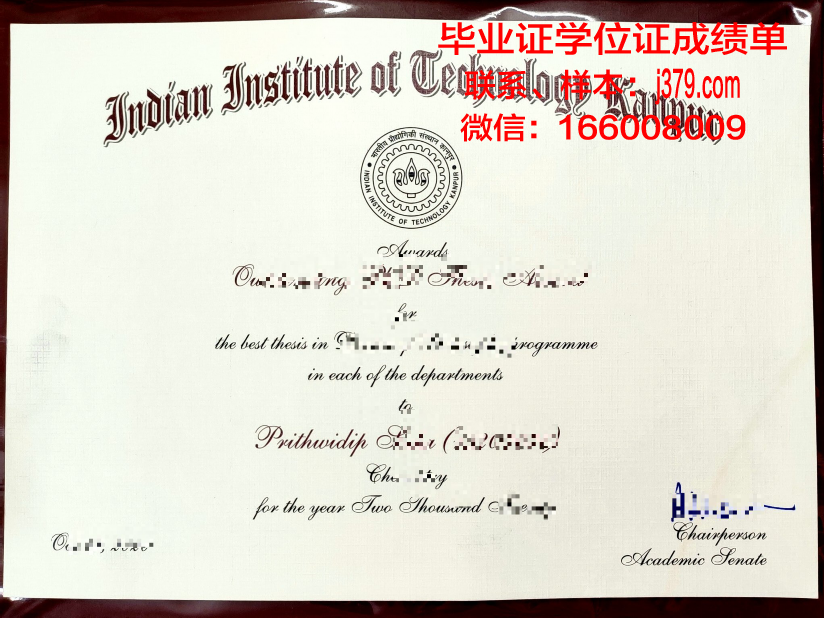 毕业证学位证成绩单
Indian Institute of Technology Kanpur
联系、样本：j379.com
微信：166008009
भारतीय प्रौद्योगिकी संस्थान कानपुर
INDIAN INSTITUTE OF TECHNOLOGY KANPUR
Awards
for
the best thesis in programme
in each of the departments
to
Prithwidip
for the year Two Thousand
Chairperson
Academic Senate